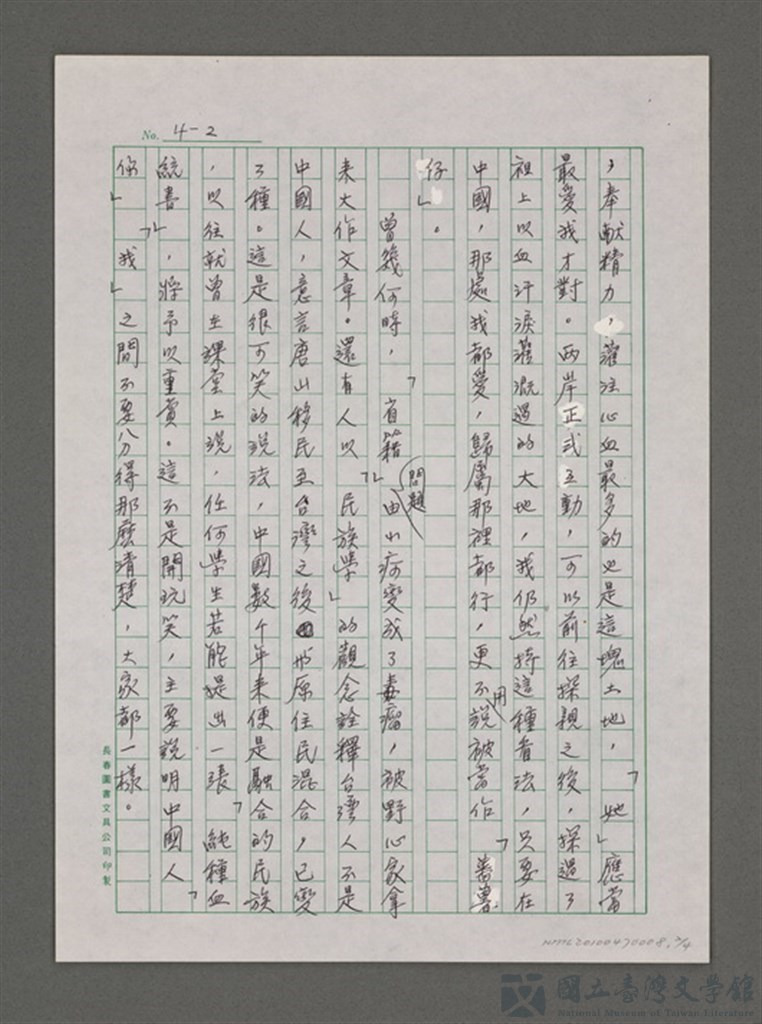 No. 4-2
，奉献精力，灌注心血最多的也是這塊土地，「她」應當
最愛我才對。兩岸正式互動，可以前往探親之後，探過了
祖上以血汗淚灌溉過的大地，我仍然持這種看法，只要在
中國，那處我都愛，歸屬那裡都行，更不用說被當作「蕃薯
仔」。
曾幾何時，「省籍」問題由小病變成了毒瘤，被野心家拿
來大作文章。還有人以「民族學」的觀念詮釋台灣人不是
中國人，意言唐山移民至台灣之後與原住民混合，已變
了種。這是很可笑的說法，中國數千年來便是融合的民族
，以往就曾在課堂上說，任何學生若能提出一張「純種血
統書」，將予以重賞。這不是開玩笑，主要說明中國人「
你」「我」之間不要分得那麼清楚，大家都一樣。
長春圖書文具公司印製
NMTL20100470008, 2/4
國立臺灣文學館
National Museum of Taiwan Literature